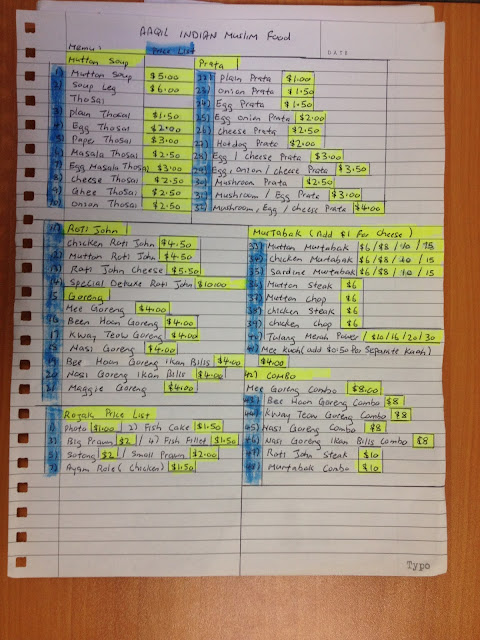 AAQIL INDIAN Muslim Food
DATE
Menu: Price List
Mutton Soup
1) Mutton Soup $5.00
2) Soup Leg $6.00
Thosai
3) Plain Thosai $1.50
4) Egg Thosai $2.00
5) Paper Thosai $3.00
6) Masala Thosai $2.50
7) Egg Masala Thosai $3.00
8) Cheese Thosai $2.50
9) Ghee Thosai $2.50
10) Onion Thosai $2.50
Prata
22) Plain Prata $1.00
23) Onion Prata $1.50
24) Egg Prata $1.50
25) Egg onion Prata $2.00
26) Cheese Prata $2.50
27) Hotdog Prata $2.00
28) Egg / Cheese Prata $3.00
29) Egg, Onion / Cheese Prata $3.50
30) Mushroom Prata $2.50
31) Mushroom / Egg Prata $3.00
32) Mushroom, Egg / Cheese Prata $4.00
Roti John
11) Chicken Roti John $4.50
12) Mutton Roti John $4.50
13) Roti John Cheese $5.50
14) Special Deluxe Roti John $10.00
Goreng
15) Mee Goreng $4.00
16) Been Hoon Goreng $4.00
17) Kway Teow Goreng $4.00
18) Nasi Goreng $4.00
19) Bee Hoon Goreng Ikan Bilis $4.00
20) Nasi Goreng Ikan Bilis $4.00
21) Maggie Goreng $4.00
Murtabak (Add $1 For Cheese)
33) Mutton Murtabak $6/$8/10/15
34) Chicken Murtabak $6/$8/10/15
35) Sardine Murtabak $6/$8/10/15
36) Mutton Steak $6
37) Mutton Chop $6
38) Chicken Steak $6
39) Chicken Chop $6
40) Tulang Merah Power / $10/16/20/30
41) Mee Kuah (add $0.50 Per Separate Kuah)
$4.00
42) COMBO
Mee Goreng Combo $8.00
43) Bee Hoon Goreng Combo $8
44) Kway Teow Goreng Combo $8
45) Nasi Goreng Combo $8
46) Nasi Goreng Ikan Bilis Combo $8
47) Roti John Steak $10
48) Murtabak Combo $10
Rojak Price List
1) Phota $1.00 2) Fish Cake $1.50
3) Big Prawn $2 / 4) Fish Fillet $1.50
5) Sotong $2 / Small Prawn $2.00
7) Ayam Role (Chicken) $1.50
Typo